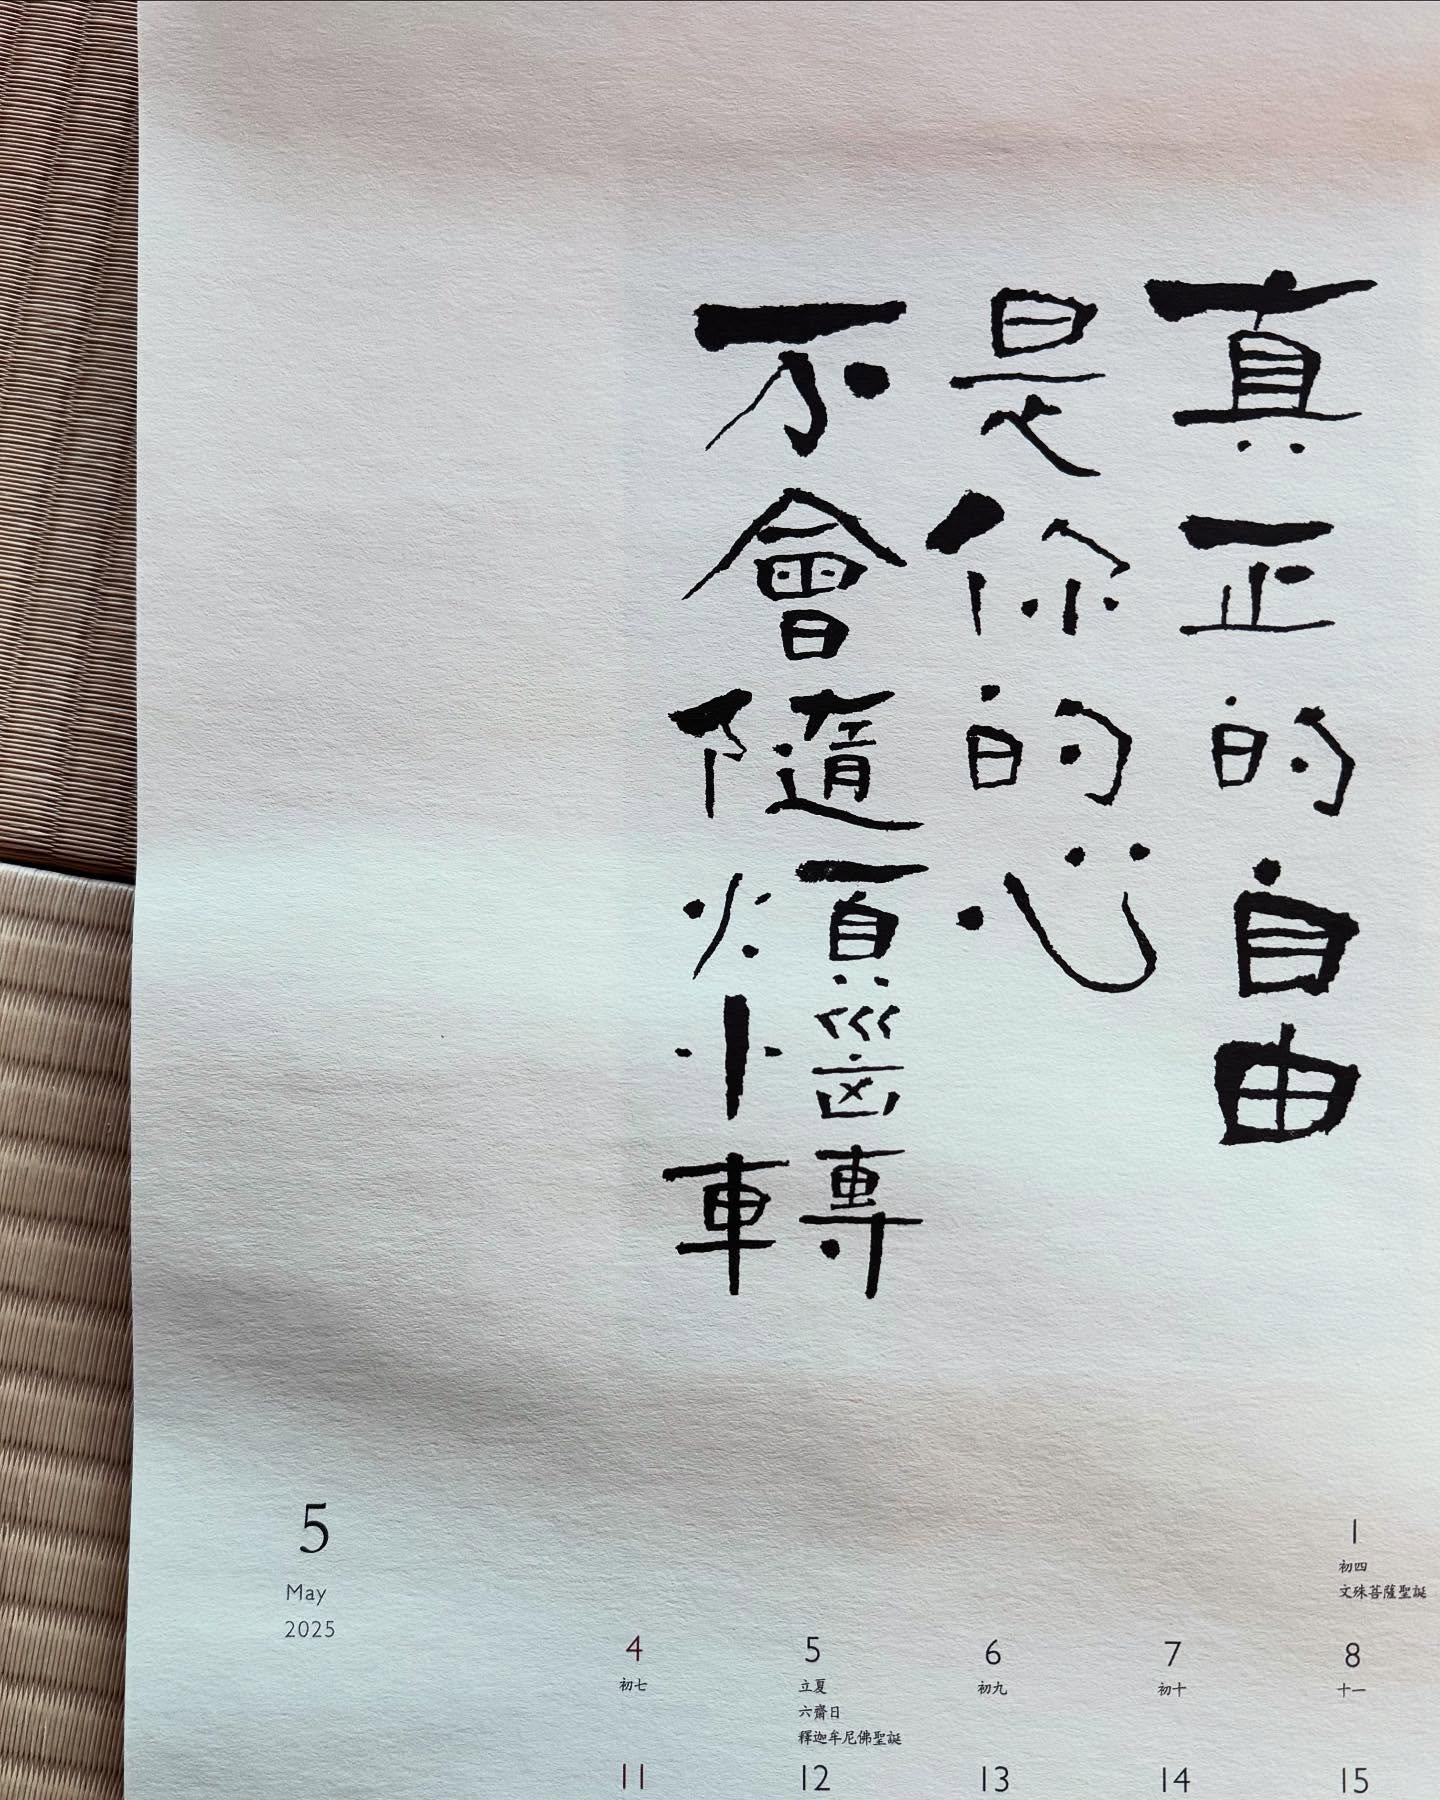 真正的自由
是你的心
不會隨煩惱轉
5
May
2025
1
初四
文殊菩薩聖誕
4
初七
5
立夏
六齋日
釋迦牟尼佛聖誕
6
初九
7
初十
8
十一
11
12
13
14
15